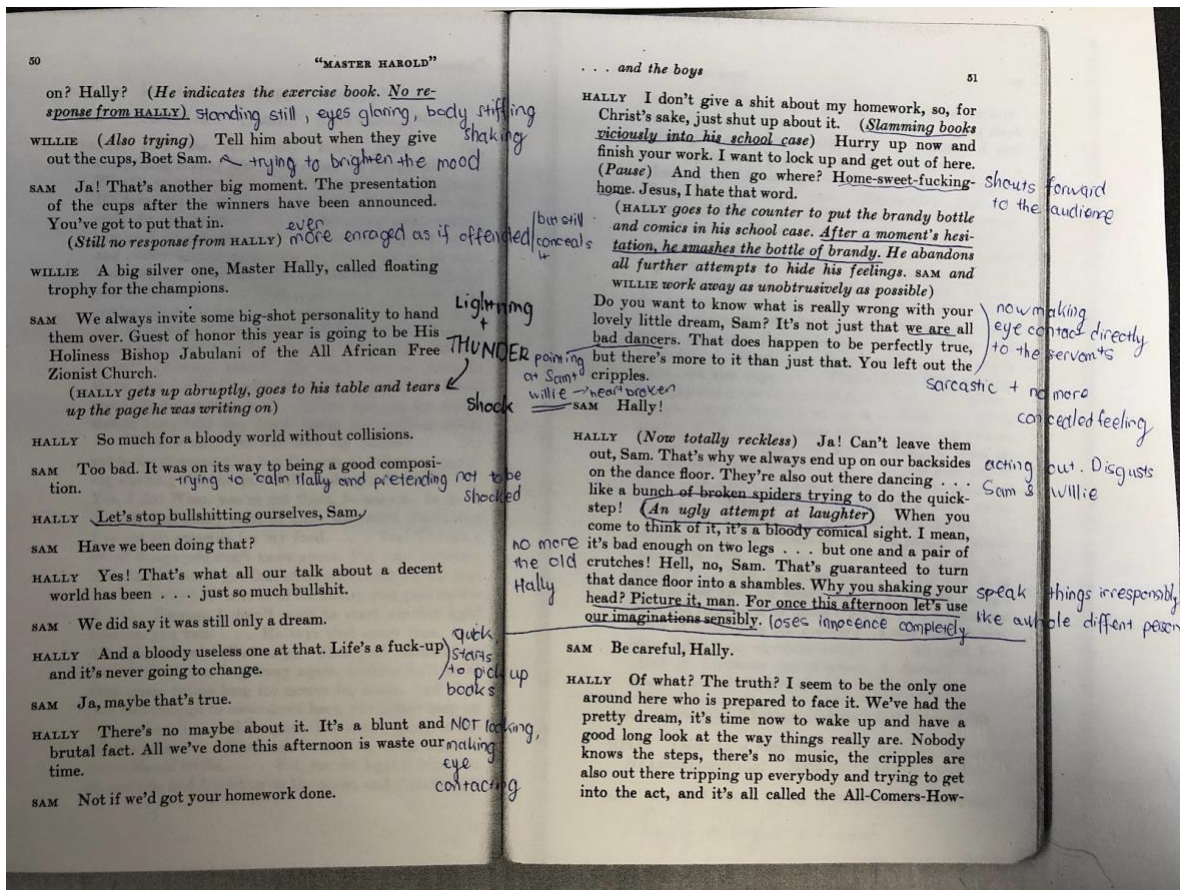 50
"MASTER HAROLD"
on? Hally? (He indicates the exercise book. No re-
sponse from HALLY) standing still, eyes glaring, body stiffing
shaking
WILLIE (Also trying) Tell him about when they give
out the cups, Boet Sam. trying to brighten the mood
SAM Ja! That's another big moment. The presentation
of the cups after the winners have been announced.
You've got to put that in.
even
(Still no response from HALLY) more enraged as if offended/but still
conceals
it
WILLIE A big silver one, Master Hally, called floating
trophy for the champions.
SAM We always invite some big-shot personality to hand
them over. Guest of honor this year is going to be His
Holiness Bishop Jabulani of the All African Free
Zionist Church.
Lightning
+
THUNDER
(HALLY gets up abruptly, goes to his table and tears
up the page he was writing on)
Shock
HALLY So much for a bloody world without collisions.
SAM Too bad. It was on its way to being a good composi-
tion. trying to calm Hally and pretending not to be
shocked
HALLY Let's stop bullshitting ourselves, Sam.
SAM Have we been doing that?
HALLY Yes! That's what all our talk about a decent
world has been . . . just so much bullshit.
SAM We did say it was still only a dream.
HALLY And a bloody useless one at that. Life's a fuck-up
and it's never going to change.
quick
starts
to pick up
books
SAM Ja, maybe that's true.
HALLY There's no maybe about it. It's a blunt and
brutal fact. All we've done this afternoon is waste our
time.
NOT looking,
making
eye
contacting
SAM Not if we'd got your homework done.
. . . and the boys
51
HALLY I don't give a shit about my homework, so, for
Christ's sake, just shut up about it. (Slamming books
viciously into his school case) Hurry up now and
finish your work. I want to lock up and get out of here.
(Pause) And then go where? Home-sweet-fucking-
home. Jesus, I hate that word.
shouts forward
to the audience
(HALLY goes to the counter to put the brandy bottle
and comics in his school case. After a moment's hesi-
tation, he smashes the bottle of brandy. He abandons
all further attempts to hide his feelings. SAM and
WILLIE work away as unobtrusively as possible)
Do you want to know what is really wrong with your
lovely little dream, Sam? It's not just that we are all
bad dancers. That does happen to be perfectly true,
but there's more to it than just that. You left out the
cripples.
now making
eye contact directly
to the servants
pointing
at Sam+
willie → heartbroken
sarcastic + no more
concealed feeling
SAM Hally!
HALLY (Now totally reckless) Ja! Can't leave them
out, Sam. That's why we always end up on our backsides
on the dance floor. They're also out there dancing . . .
like a bunch of broken spiders trying to do the quick-
step! (An ugly attempt at laughter) When you
come to think of it, it's a bloody comical sight. I mean,
it's bad enough on two legs . . . but one and a pair of
crutches! Hell, no, Sam. That's guaranteed to turn
that dance floor into a shambles. Why you shaking your
head? Picture it, man. For once this afternoon let's use
our imaginations sensibly. loses innocence completely
acting out. Disgusts
Sam & Willie
no more
the old
Hally
speak things irresponsibly
like a whole diffent person
SAM Be careful, Hally.
HALLY Of what? The truth? I seem to be the only one
around here who is prepared to face it. We've had the
pretty dream, it's time now to wake up and have a
good long look at the way things really are. Nobody
knows the steps, there's no music, the cripples are
also out there tripping up everybody and trying to get
into the act, and it's all called the All-Comers-How-